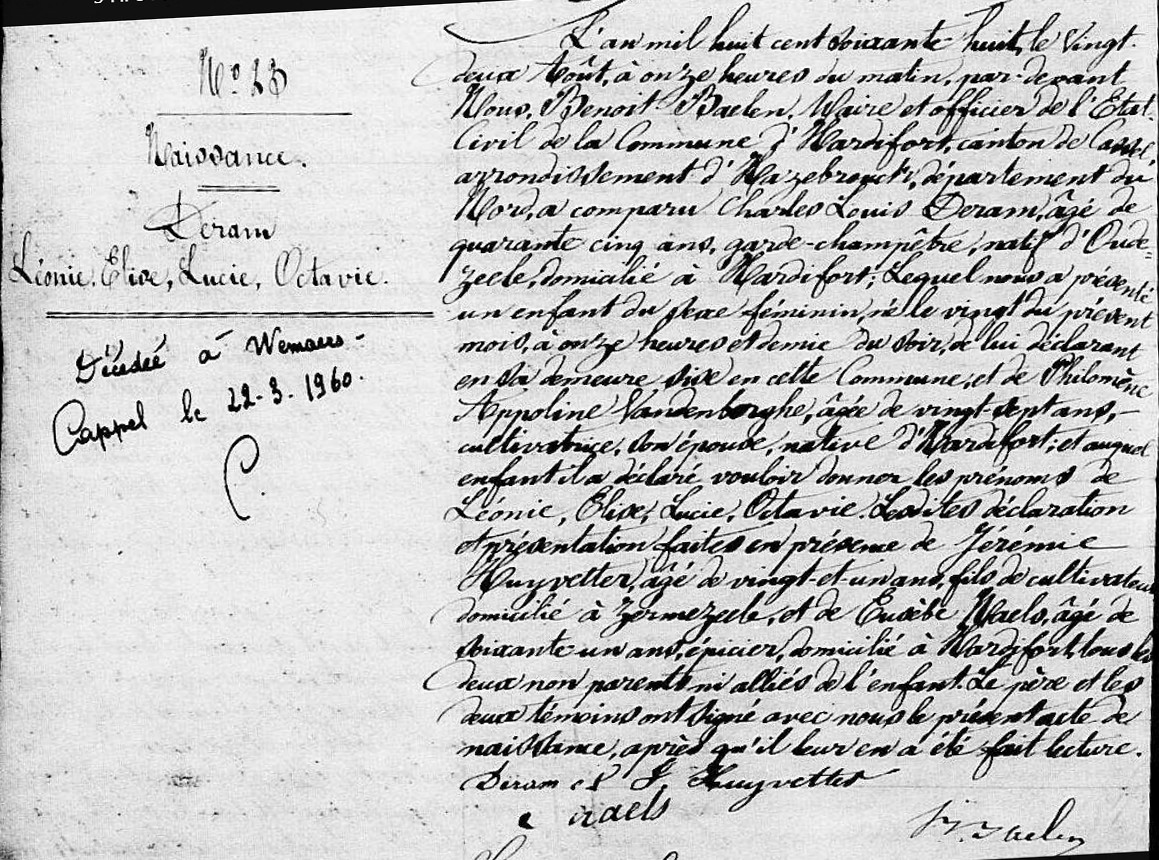 Naissance.
Deram
Léonie, Elise, Lucie, Octavie.
Décédée à Wemaers-
Cappel le 22-3-1960.
L'an mil huit cent soixante huit, le vingt
deux Août, à onze heures du matin, par-devant
Nous, Benoit Baelen, Maire et officier de l'Etat
Civil de la Commune d'Hardifort, canton de Cassel,
arrondissement d'Hazebrouck, département du
Nord, a comparu Charles Louis Deram, âgé de
quarante cinq ans, garde-champêtre, natif d'Oude-
zeele, domicilié à Hardifort; Lequel nous a présenté
un enfant du sexe féminin, né le vingt du présent
mois, à onze heures et demie du soir, de lui déclarant
en sa demeure sise en cette Commune, et de Philomène
Appoline Vandenborghe, âgée de vingt-sept ans,-
cultivatrice, son épouse, native d'Hardifort; et auquel
enfant il a déclaré vouloir donner les prénoms de
Léonie, Elise, Lucie, Octavie. Lesdites déclaration
et présentation faites en présence de Jérémie
Huyvetter, âgé de vingt-et-un ans, fils de cultivateur
domicilié à Zermezeele, et de Eusèbe Naels, âgé de
soixante-un ans, épicier, domicilié à Hardifort, tous les
deux non parents ni alliés de l'enfant. Le père et les
deux témoins ont signé avec nous le présent acte de
naissance, après qu'il leur en a été fait lecture.
Deram c L J. Huyvetter
naels